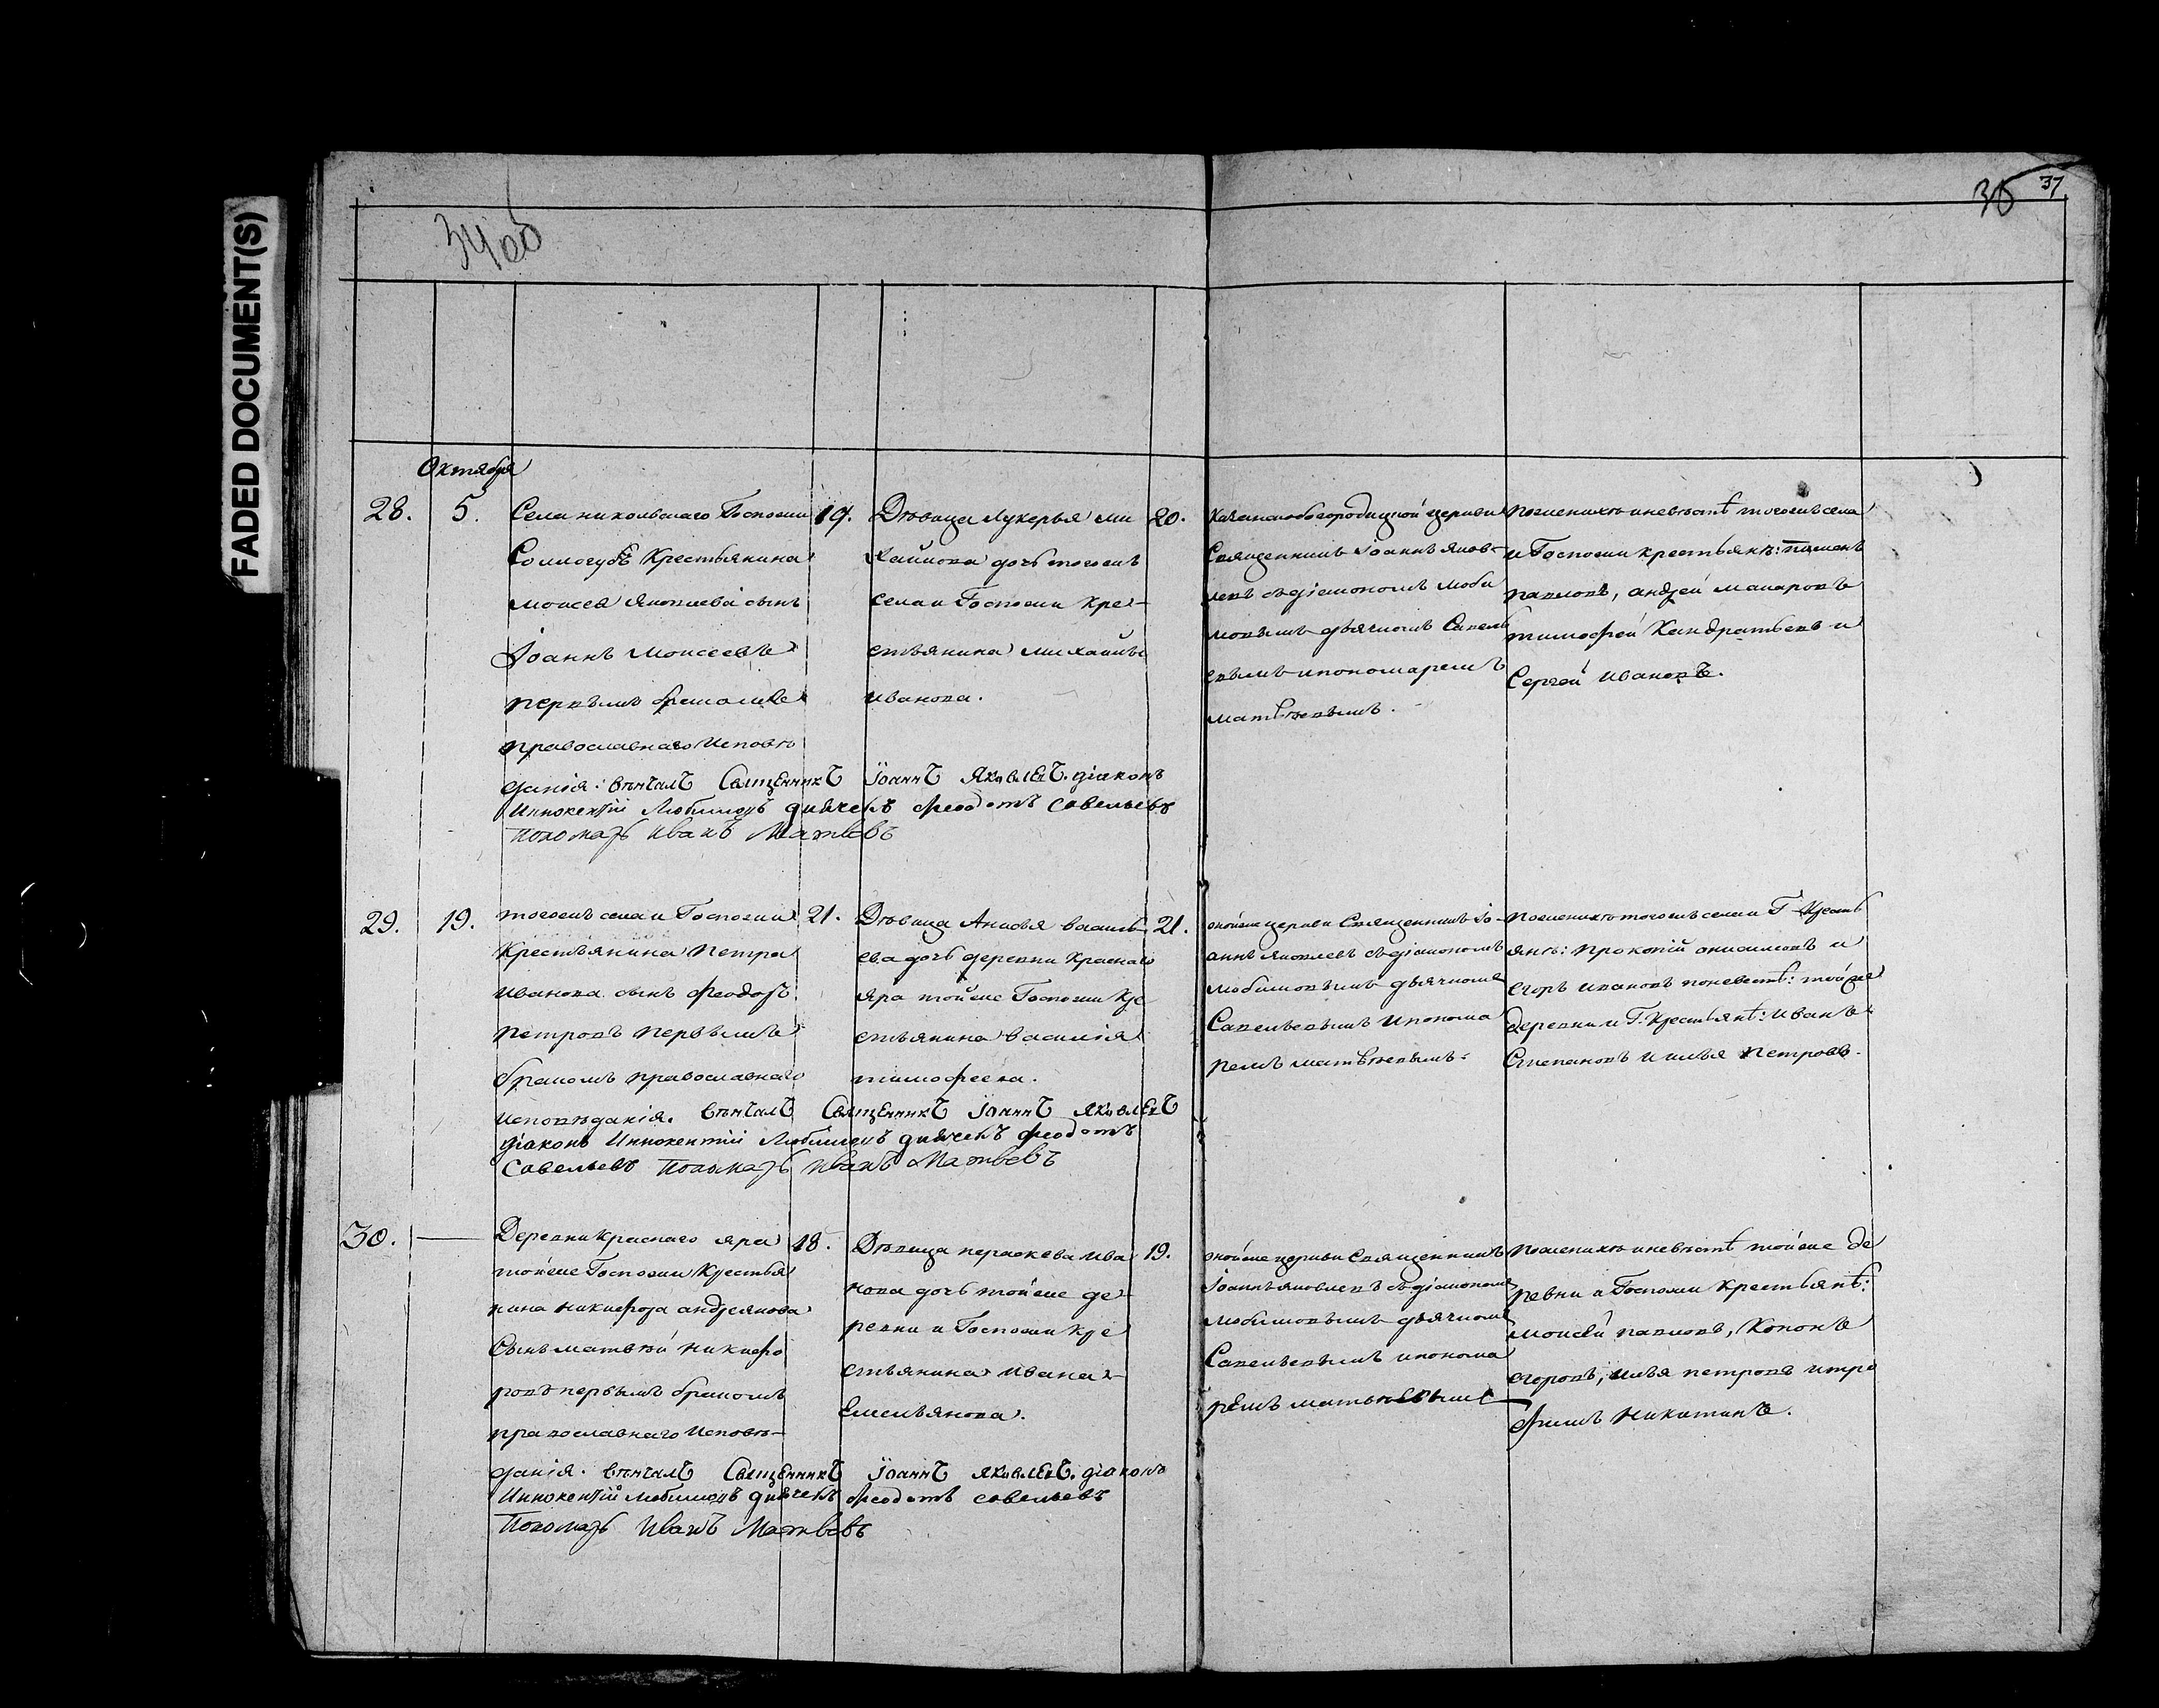 FADED DOCUMENT(S)
34об
37
Октября
28.
5.
Села никольскаго Госпожи
Соллогубъ Крестьянина
Моисея Яковлева сынъ
Іоаннъ Моисеевъ
первымъ бракомъ
православнаго Исповѣ
данія: вѣнчалъ Священникъ Іоаннъ Яковлевъ. діаконъ
Иннокентій Любимовъ дьячекъ Феодотъ Савельевъ
Пономарь Иванъ Матвѣевъ
19.
Дѣвица Лукерья Ми
хайлова дочь тогожъ
села и Госпожи Кре-
стьянина Михайлы
Иванова.
20.
Казанскобогородицкой церкви
Священникъ Іоаннъ Яков-
левъ съ діакономъ Люби
мовымъ дьячкомъ Савель
евымъ и пономаремъ
Матвѣевымъ.
По женихѣ и невѣстѣ тогожъ села
и Госпожи крестьянѣ:
павловъ, андрей макаровъ
тимофей Кандратьевъ и
Сергей Ивановъ.
29.
19.
тогожъ села и Госпожи
Крестьянина Петра
Иванова сынъ Феодоръ
Петровъ первымъ
бракомъ православнаго
исповѣданія. вѣнчалъ Священникъ Іоаннъ Яковлевъ
діаконъ Иннокентій Любимовъ дьячекъ Феодотъ
Савельевъ Пономарь Иванъ Матвѣевъ
21.
Дѣвица Анисья василь
ева дочь деревни Краснаго
яра тойже Госпожи Кре
стьянина Василія
тимофеева.
21.
онойже церкви Священникъ Іо-
аннъ Яковлевъ съ діакономъ
Любимовымъ дьячкомъ
Савельевымъ и понома
ремъ матвѣевымъ.
По женихѣ тогожъ села и Г. Кресть
янѣ: прокопій анисимовъ и
егоръ ивановъ по невѣстѣ: тойже
деревни и Г. Крестьянѣ: Иванъ
Степановъ и илья Петровъ.
30.
Деревни краснаго яра
тойже Госпожи Крестья
нина никифора андреянова
Сынъ матвѣй никифо
ровъ первымъ бракомъ
православнаго Исповѣ-
данія. вѣнчалъ Священникъ Іоаннъ Яковлевъ. діаконъ
Иннокентій Любимовъ дьячекъ Феодотъ Савельевъ
Пономарь Иванъ Матвѣевъ
18.
Дѣвица параскева Ива
нова дочь тойже де-
ревни и Госпожи Кре
стьянина Ивана
Емельянова.
19.
онойже церкви Священникъ
Іоаннъ Яковлевъ съ діакономъ
Любимовымъ дьячкомъ
Савельевымъ и понома
ремъ матвѣевымъ
По женихѣ и невѣстѣ тойже де
ревни и Госпожи Крестьянѣ:
Моисей павловъ, Кононъ
егоровъ, илья петровъ и тро
фимъ Никитинъ.